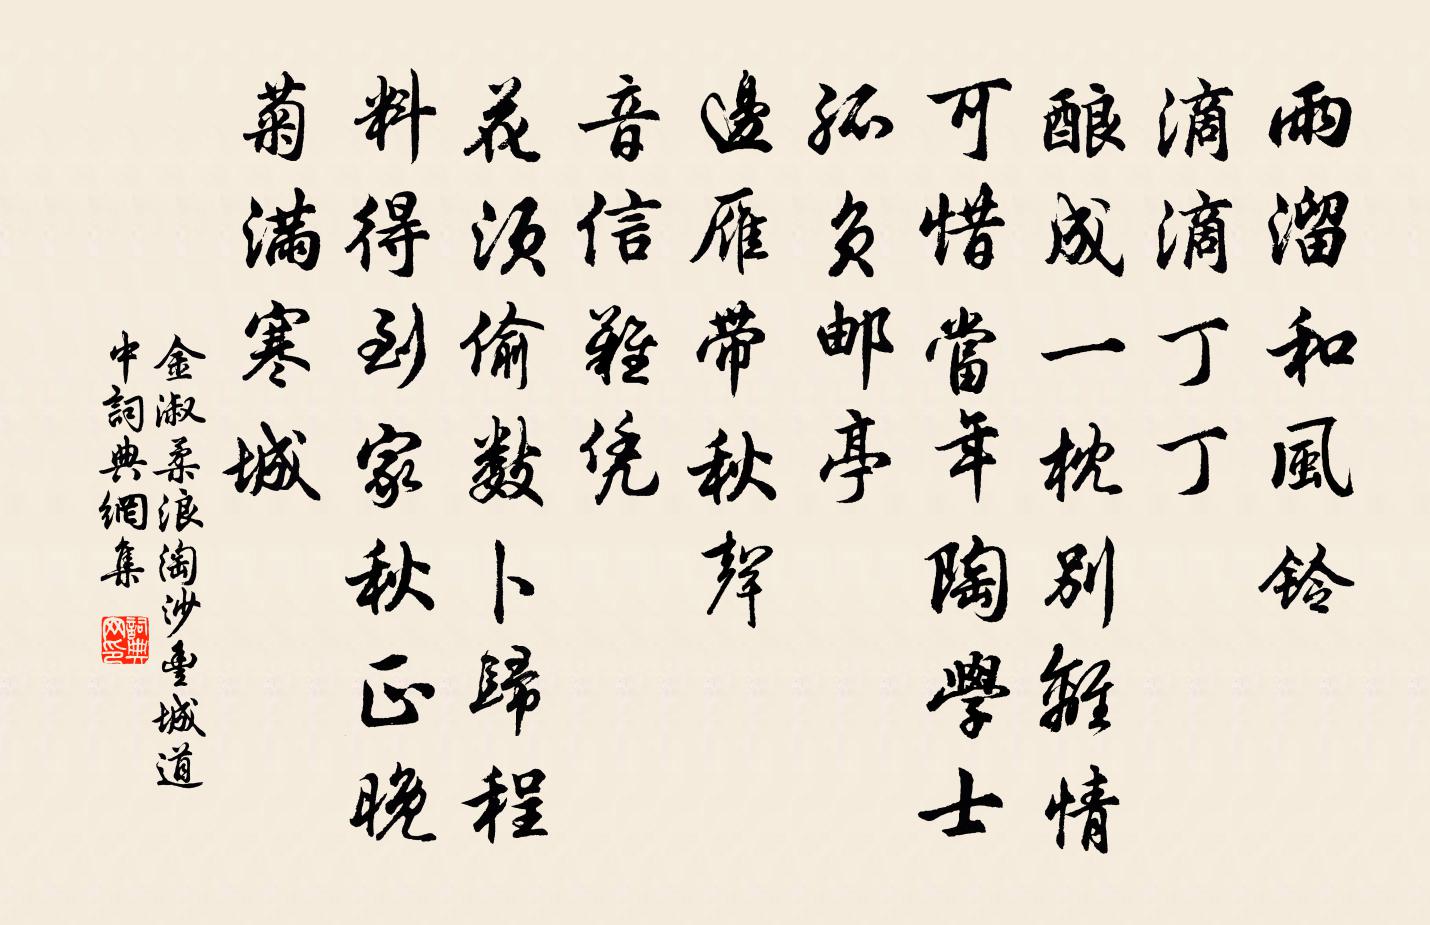 雨溜和風鈴
滴滴丁丁
酿成一枕別離情
可惜當年陶學士
孤负邮亭
邊雁帶秋聲
音信難凭
花須偷數卜歸程
料得到家秋正晚
菊滿寒城
金淑柔浪淘沙豐城道
中詞典網集
詞典网印